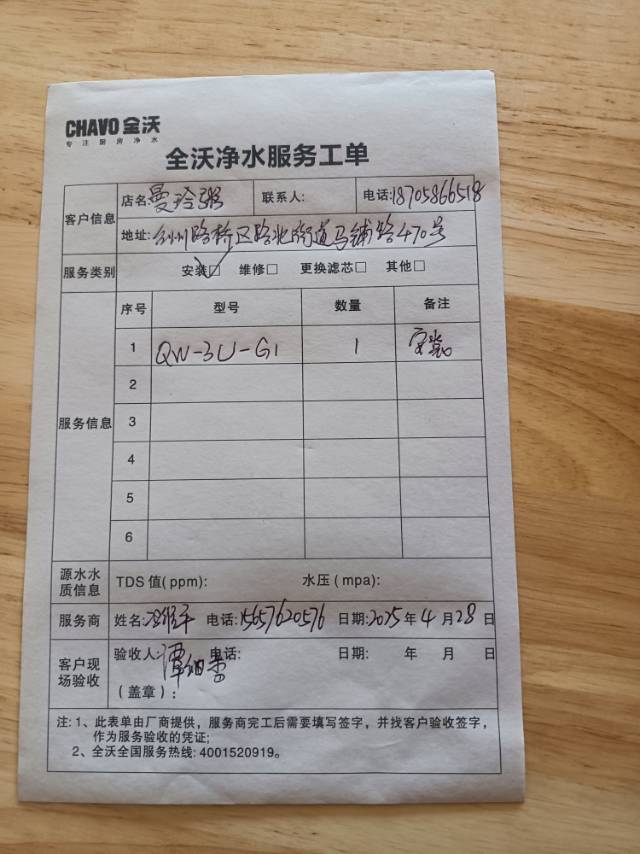 CHAVO 全沃
专注厨房净水
全沃净水服务工单
客户信息
店名:曼玲粥 联系人: 电话:18705866518
地址:台州路桥区路北街道马铺路470号
服务类别 安装☑ 维修□ 更换滤芯□ 其他□
服务信息
序号 型号 数量 备注
1 QW-3U-G1 1 安装
2
3
4
5
6
源水水质信息 TDS 值(ppm): 水压(mpa):
服务商 姓名: 电话:15657620576 日期:2025年4月28日
客户现场验收
验收人:谭 电话: 日期: 年 月 日
(盖章):
注: 1、此表单由厂商提供，服务商完工后需要填写签字，并找客户验收签字，
作为服务验收的凭证;
2、全沃全国服务热线: 4001520919。